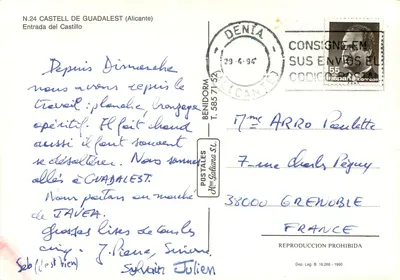 N.24 CASTELL DE GUADALEST (Alicante)
Entrada del Castillo
Depuis Dimanche
nous avons repris le
travail: planche, bronzage
apéritif. Il fait chaud
aussi il faut souvent
se désaltérer. Nous sommes
allés à GUADALEST.
Nous partons au marché
de JAVEA.
Grosses bises de tous les
cinq. J. Pierre, Simone
Seb (c'est bien) Sylvain Julien
BENIDORM
T. 585 71 52
POSTALES
Hnos Galiana S.L.
DENIA
29-4-94
(ALICANTE)
CONSIGNE EN
SUS ENVIOS EL
CODIGO
55
España
Mme ARRO Paulette
7 rue Charles Péguy
38000 GRENOBLE
FRANCE
REPRODUCCION PROHIBIDA
Dep. Leg. B. 16.266 - 1990